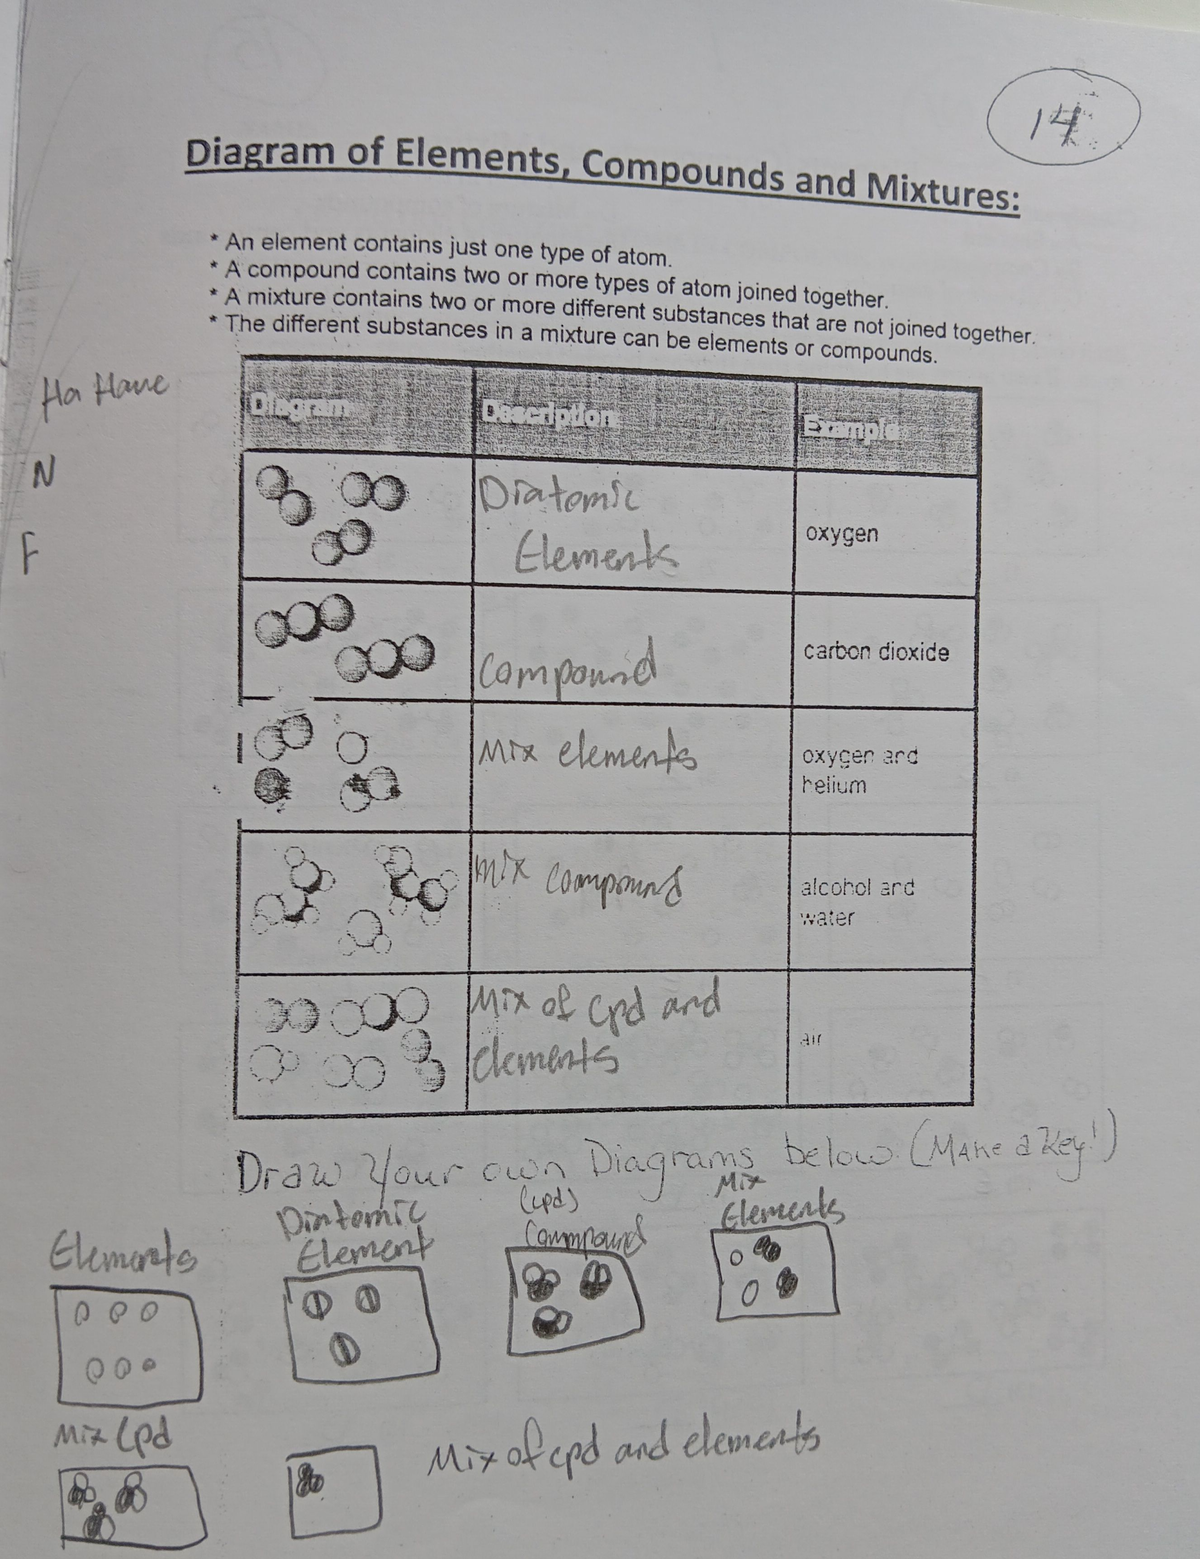 14
Diagram of Elements, Compounds and Mixtures:
* An element contains just one type of atom.
* A compound contains two or more types of atom joined together.
* A mixture contains two or more different substances that are not joined together.
* The different substances in a mixture can be elements or compounds.
Ha Have
N
F
Diagram Description Example
Diatomic
Elements
oxygen
Compound
carbon dioxide
Mix elements
oxygen and
helium
mix compound
alcohol and
water
Mix of cpd and
elements
air
Draw your own Diagrams below (Make a Key!)
Elements
Diatomic
Element
(cpd)
Coumpound
Mix
Elements
Mix Cpd
Mix of cpd and elements